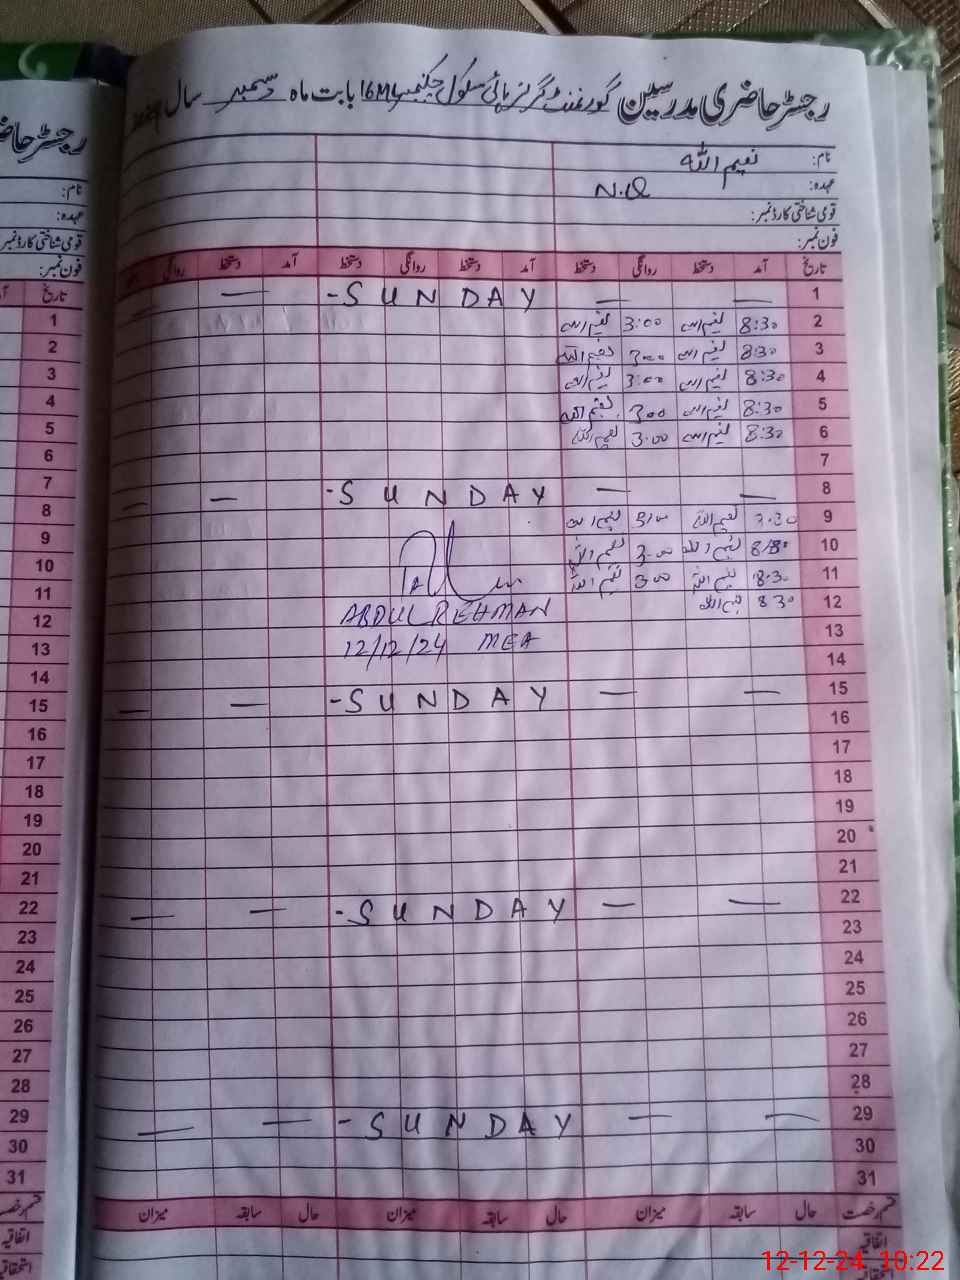 رجسٹر حاضری مدرسین گورنمنٹ گرلز ہائی سکول چکنمبر 16ML بابت ماہ دسمبر سال
نام: نعیم اللہ
عہدہ: N.Q
قومی شناختی کارڈ نمبر:
فون نمبر:
تاریخ آمد دستخط روانگی دستخط آمد دستخط روانگی دستخط آمد دستخط روانگی
1 — — - S U N D A Y —
2 8:30 نعیم اللہ 3:00 نعیم اللہ
3 8:30 نعیم اللہ 3:00 نعیم اللہ
4 8:30 نعیم اللہ 3:00 نعیم اللہ
5 8:30 نعیم اللہ 3:00 نعیم اللہ
6 8:30 نعیم اللہ 3:00 نعیم اللہ
7
8 — — - S U N D A Y — —
9 3:30 نعیم اللہ نعیم اللہ
10 نعیم اللہ 3:00 نعیم اللہ
11 8:30 نعیم اللہ 3:00 نعیم اللہ
12 8 30 نعیم اللہ ABDUL REHMAN
13 12/12/24 MEA
14
15 — — - S U N D A Y — —
16
17
18
19
20
21
22 — — - S U N D A Y — —
23
24
25
26
27
28
29 — — - S U N D A Y — —
30
31
قسم رخصت حال سابقہ میزان حال سابقہ میزان حال سابقہ میزان
اتفاقیہ
استحقاقیہ
رجسٹر حاضری
نام:
عہدہ:
قومی شناختی کارڈ نمبر
فون نمبر:
تاریخ
1
2
3
4
5
6
7
8
9
10
11
12
13
14
15
16
17
18
19
20
21
22
23
24
25
26
27
28
29
30
31
قسم رخصت
اتفاقیہ
استحقاقیہ
12-12-24 10:22